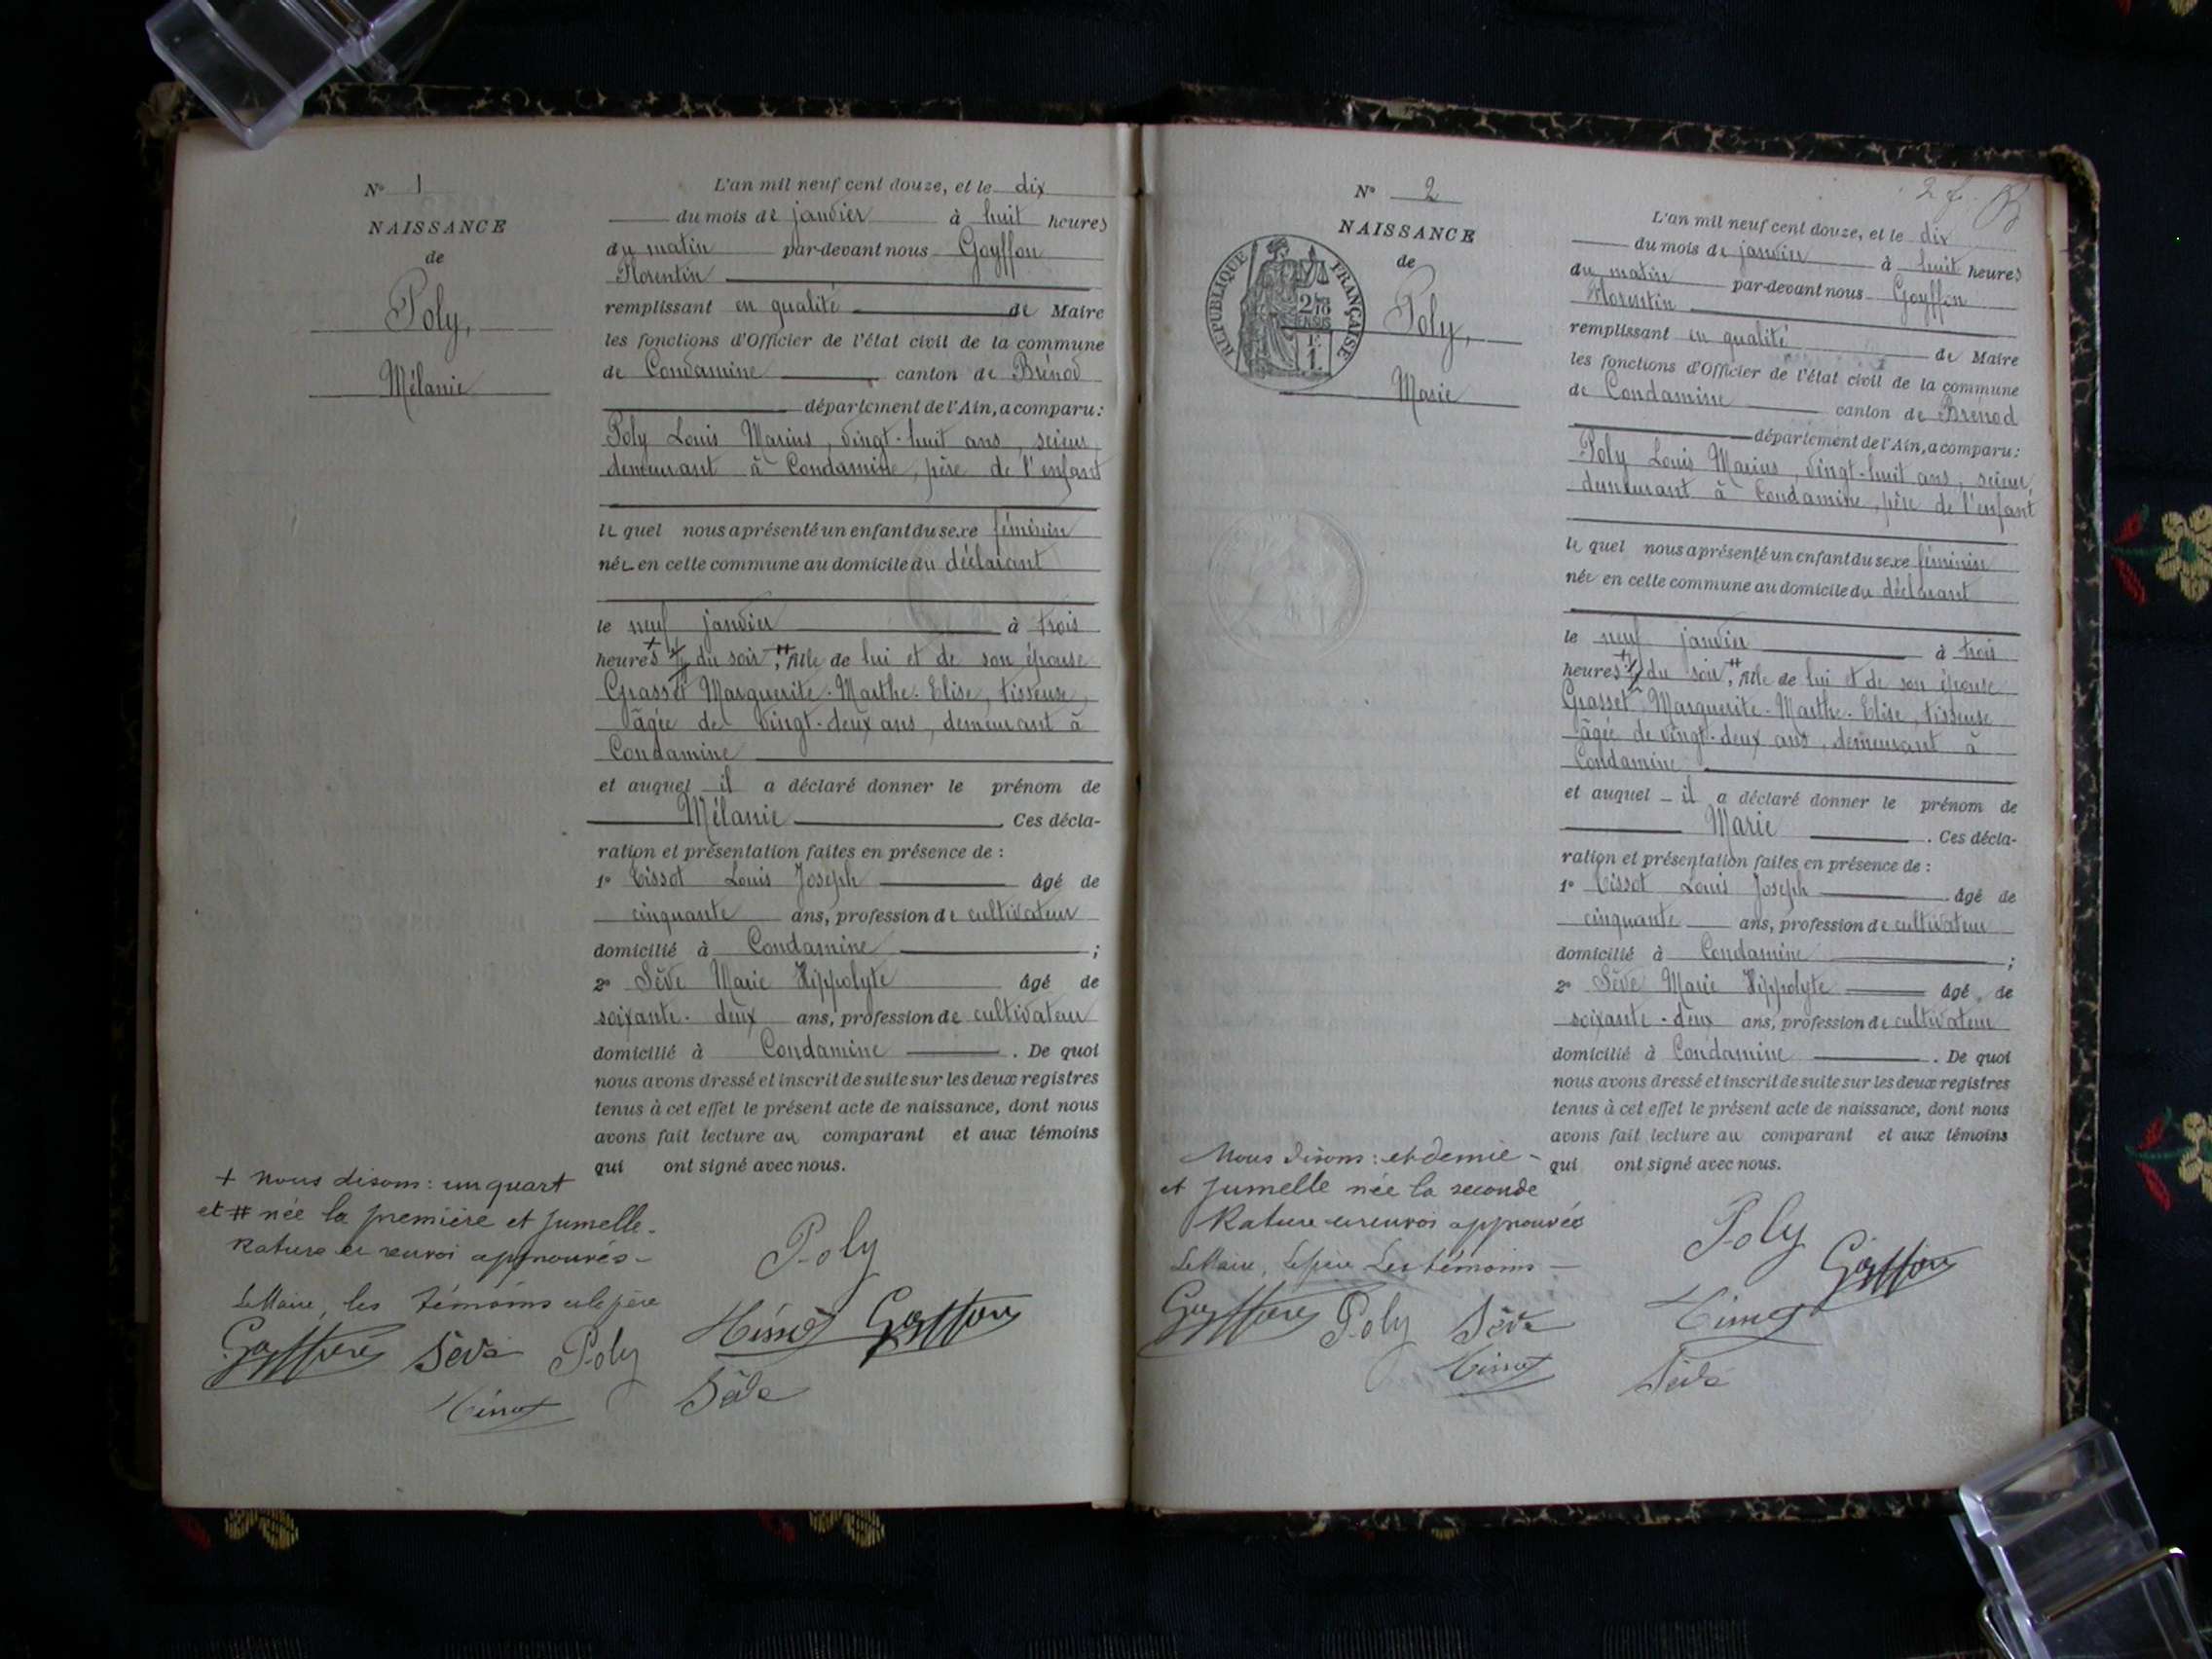 N° 1
NAISSANCE
de
Poly,
Mélanie
L'an mil neuf cent douze, et le dix
du mois de janvier à huit heures
du matin par-devant nous Goyffon
Florentin
remplissant en qualité de Maire
les fonctions d'Officier de l'état civil de la commune
de Condamine canton de Brénod
département de l'Ain, a comparu :
Poly Louis Marius, vingt-huit ans, scieur
demeurant à Condamine, père de l'enfant
lequel nous a présenté un enfant du sexe féminin
née en cette commune au domicile du déclarant
le neuf janvier à trois
heures + du soir, # fille de lui et de son épouse
Grasset Marguerite-Marthe-Elise, tisseuse,
âgée de vingt-deux ans, demeurant à
Condamine
et auquel il a déclaré donner le prénom de
Mélanie. Ces décla-
ration et présentation faites en présence de :
1° Tissot Louis Joseph âgé de
cinquante ans, profession de cultivateur
domicilié à Condamine ;
2° Sève Marie Hippolyte âgé de
soixante-deux ans, profession de cultivateur
domicilié à Condamine. De quoi
nous avons dressé et inscrit de suite sur les deux registres
tenus à cet effet le présent acte de naissance, dont nous
avons fait lecture au comparant et aux témoins
qui ont signé avec nous.
+ Nous disons : un quart
et # née la première et jumelle.
Rature et renvoi approuvés -
Le Maire, les témoins et le père
Poly
Tissot Goyffon
Goyffon Sève Poly
Sève
Tissot
N° 2
NAISSANCE
de
Poly,
Marie
RÉPUBLIQUE FRANÇAISE
2/10
EN SUS
1 F.
2 f.
L'an mil neuf cent douze, et le dix
du mois de janvier à huit heures
du matin par-devant nous Goyffon
Florentin
remplissant en qualité de Maire
les fonctions d'Officier de l'état civil de la commune
de Condamine canton de Brenod
département de l'Ain, a comparu :
Poly Louis Marius, vingt-huit ans, scieur,
demeurant à Condamine, père de l'enfant
lequel nous a présenté un enfant du sexe féminin
née en cette commune au domicile du déclarant
le neuf janvier à trois
heures + du soir, # fille de lui et de son épouse
Grasset Marguerite-Marthe-Elise, tisseuse
âgée de vingt-deux ans, demeurant à
Condamine
et auquel il a déclaré donner le prénom de
Marie. Ces décla-
ration et présentation faites en présence de :
1° Tissot Louis Joseph âgé de
cinquante ans, profession de cultivateur
domicilié à Condamine ;
2° Sève Marie Hippolyte âgé de
soixante-deux ans, profession de cultivateur
domicilié à Condamine. De quoi
nous avons dressé et inscrit de suite sur les deux registres
tenus à cet effet le présent acte de naissance, dont nous
avons fait lecture au comparant et aux témoins
qui ont signé avec nous.
Nous disons : et demie -
et jumelle née la seconde
Rature et renvoi approuvés
Le Maire, Le père Les témoins -
Poly
Goyffon
Goyffon Poly Sève
Tissot
Tissot
Sève